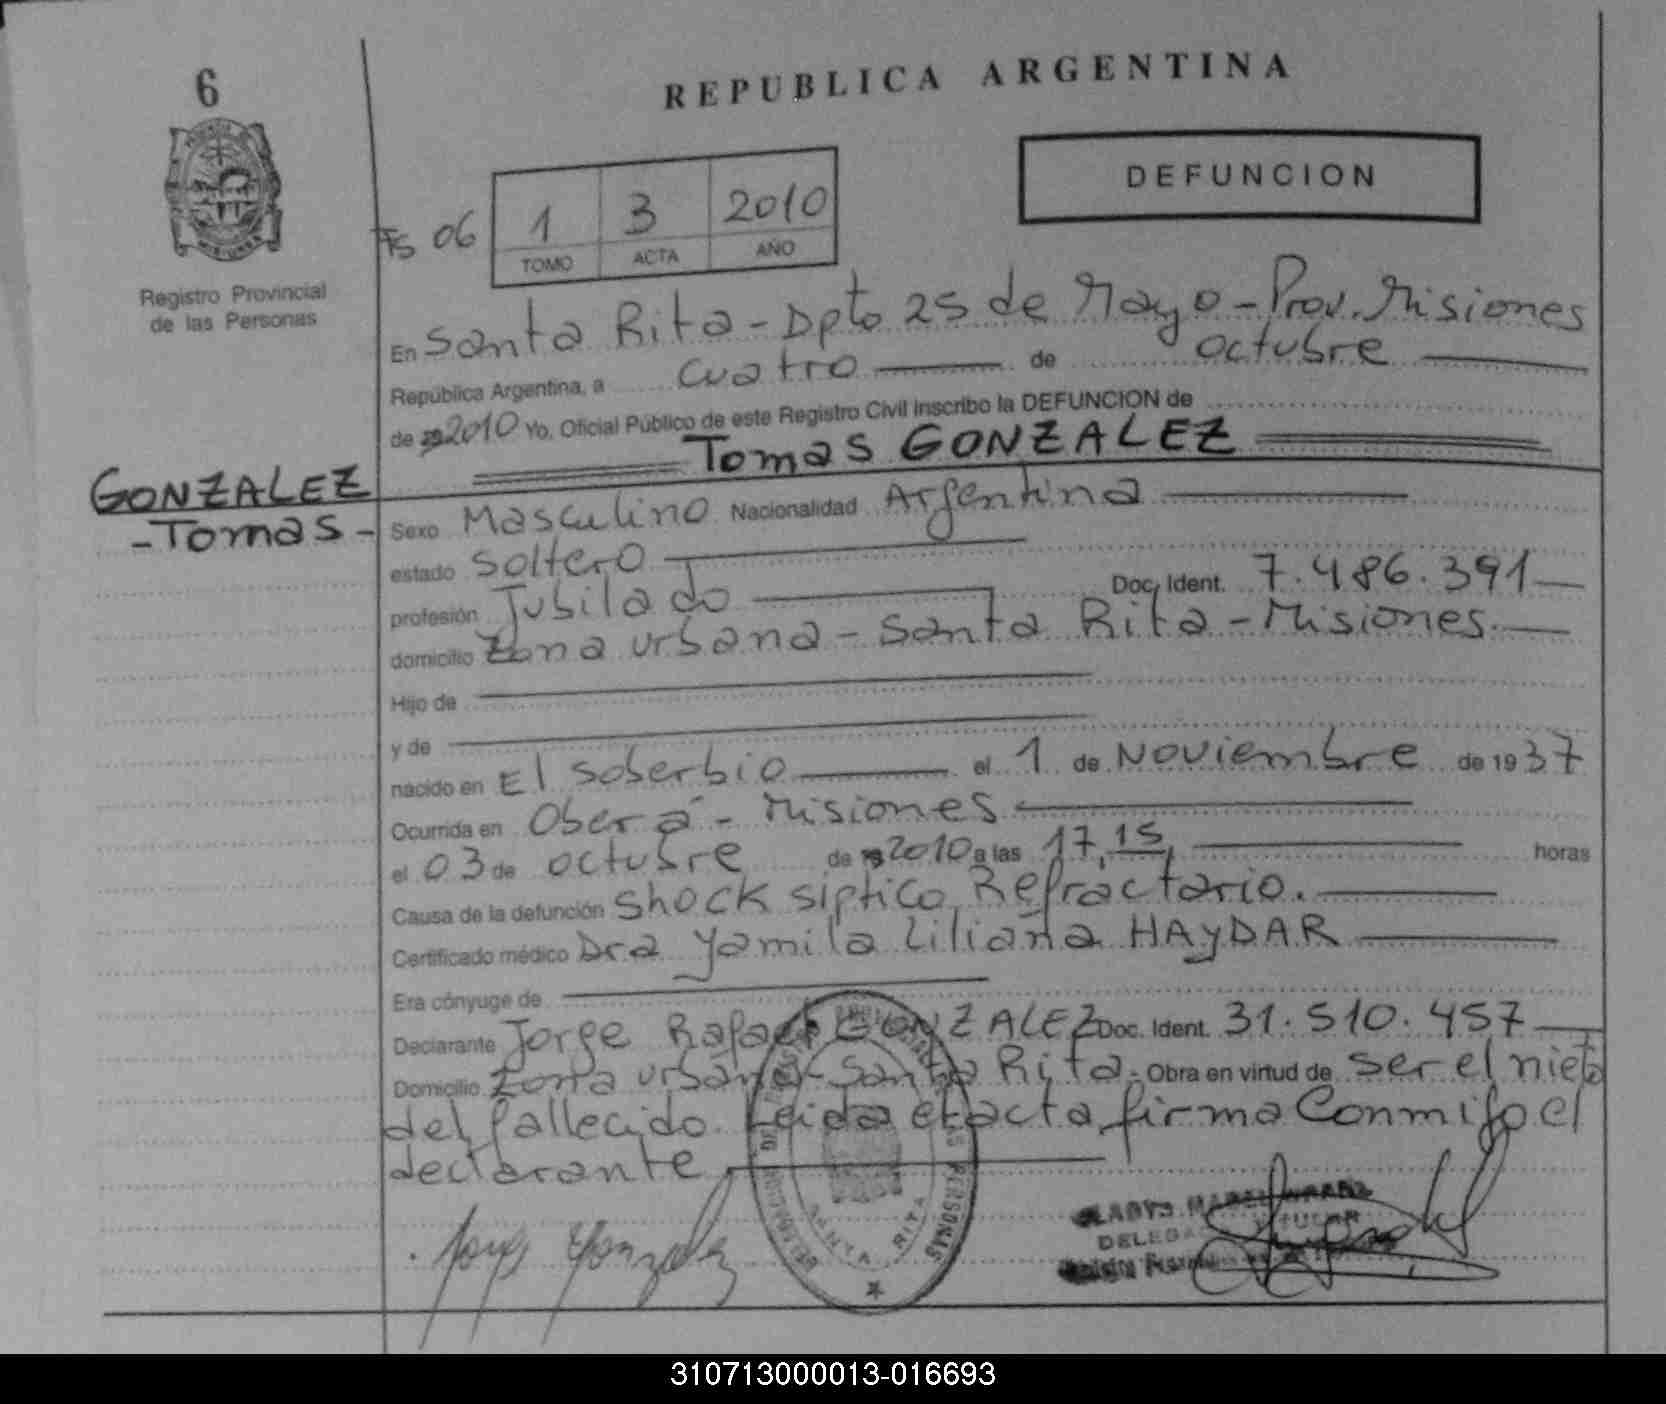 6
REPUBLICA ARGENTINA
DEFUNCION
Registro Provincial
de las Personas
Fs 06
1 3 2010
TOMO ACTA AÑO
En Santa Rita - Dpto 25 de Mayo - Prov. Misiones
República Argentina, a cuatro de octubre
de 2010 Yo, Oficial Público de este Registro Civil inscribo la DEFUNCION de
Tomas GONZALEZ
GONZALEZ
- Tomas -
Sexo Masculino Nacionalidad Argentina
estado soltero
profesión Jubilado Doc. Ident. 7.486.391
domicilio Zona urbana - Santa Rita - Misiones.
Hijo de
y de
nacido en El soberbio el 1 de Noviembre de 1937
Ocurrida en Oberá - Misiones
el 03 de octubre de 2010 a las 17,15 horas
Causa de la defunción Shock siptico Refractario.
Certificado médico Dra Yamila Liliana HAYDAR
Era cónyuge de
Declarante Jorge Rafael GONZALEZ Doc. Ident. 31.510.457
Domicilio Zona urbana - Santa Rita. Obra en virtud de ser el nieto
del fallecido. Leida el acta firma Conmigo el
declarante
SANTA RITA
PERSONAS
Jorge Gonzalez
GLADYS MABEL
DELEGADA TITULAR
310713000013-016693